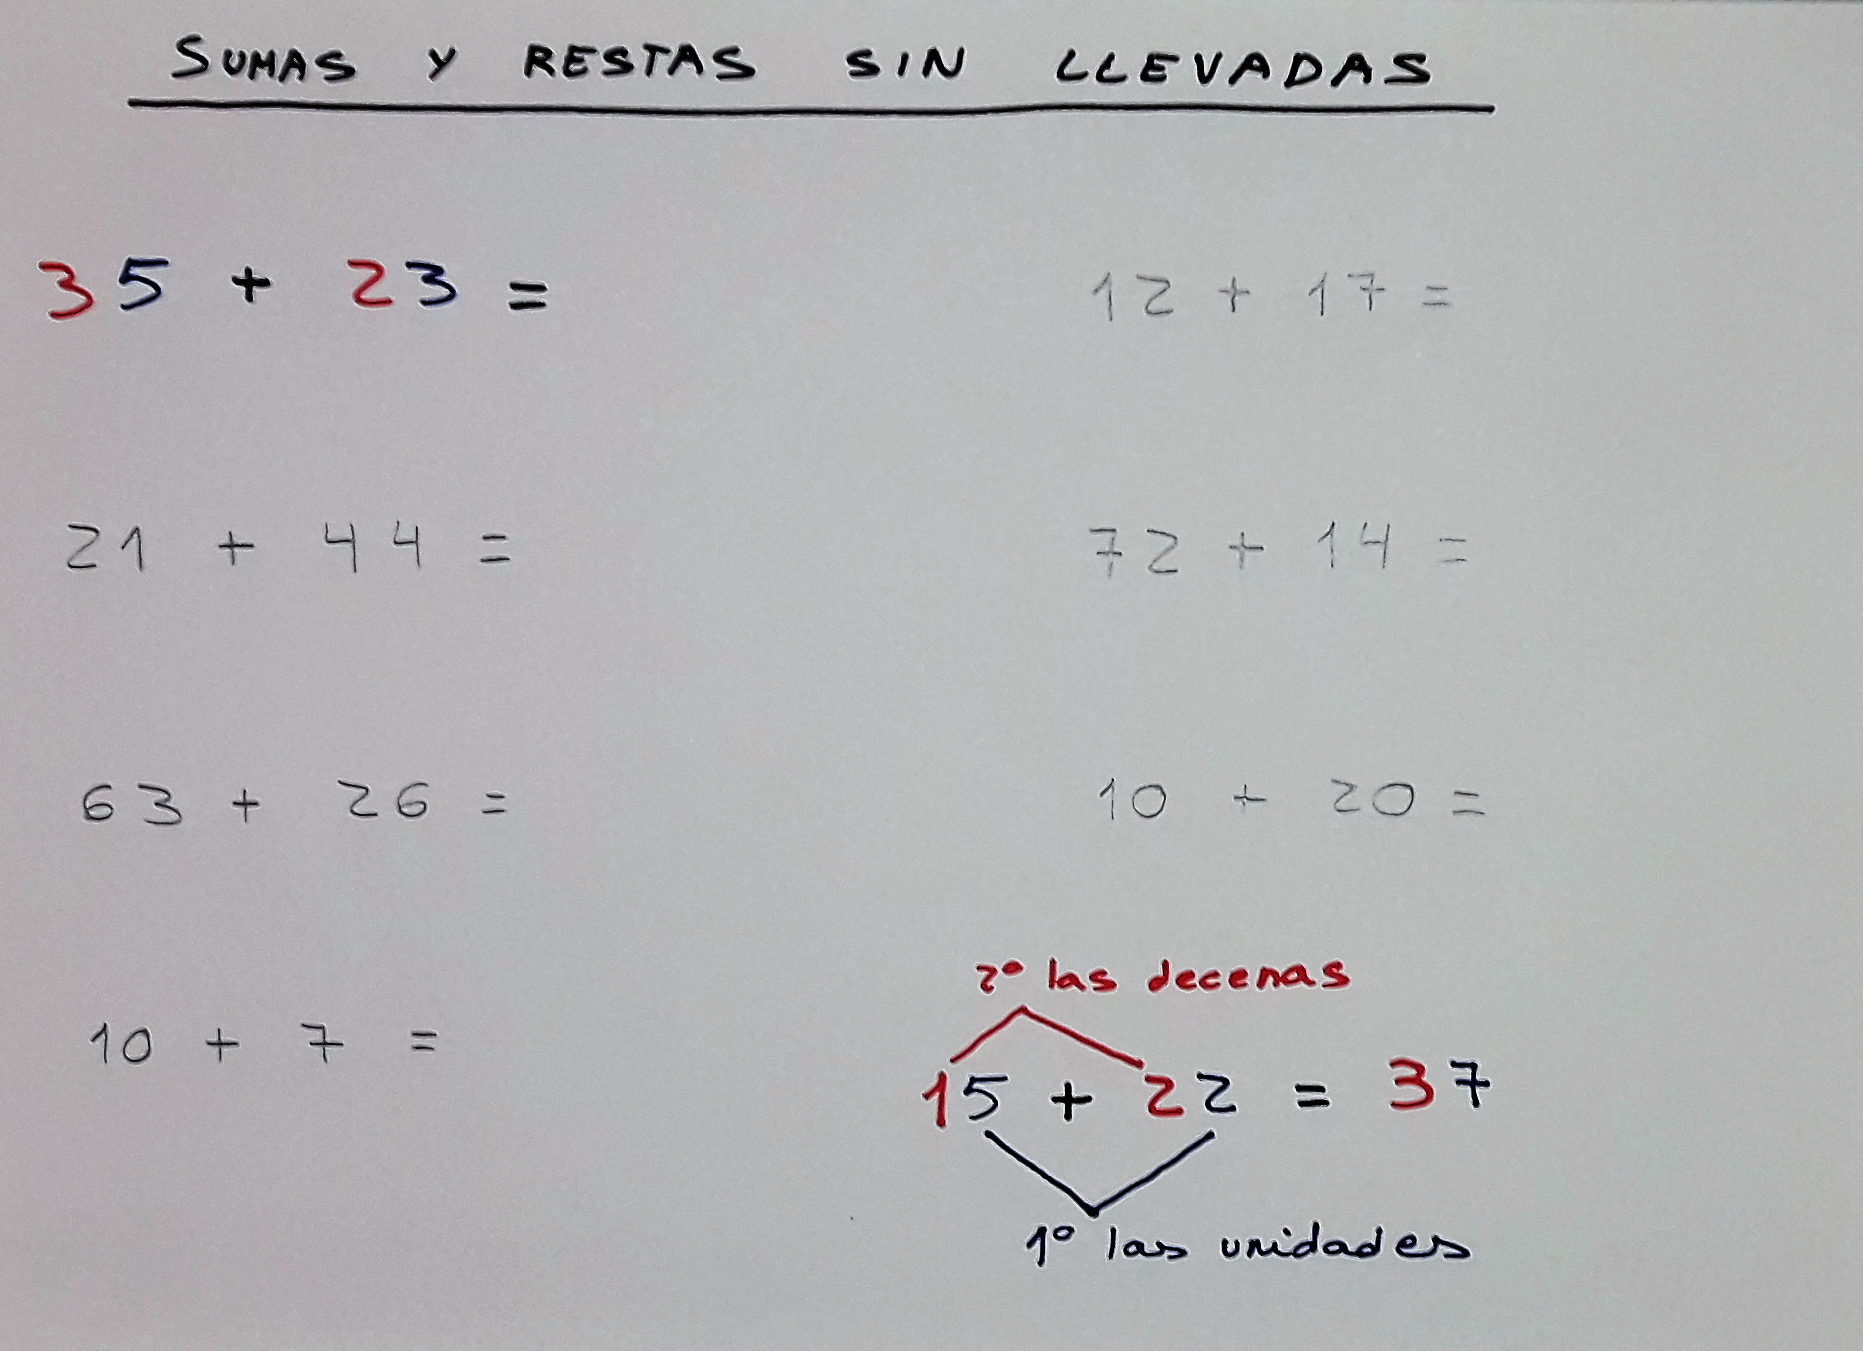 SUMAS Y RESTAS SIN LLEVADAS
35 + 23 =
12 + 17 =
21 + 44 =
72 + 14 =
63 + 26 =
10 + 20 =
10 + 7 =
2º las decenas
15 + 22 = 37
1º las unidades